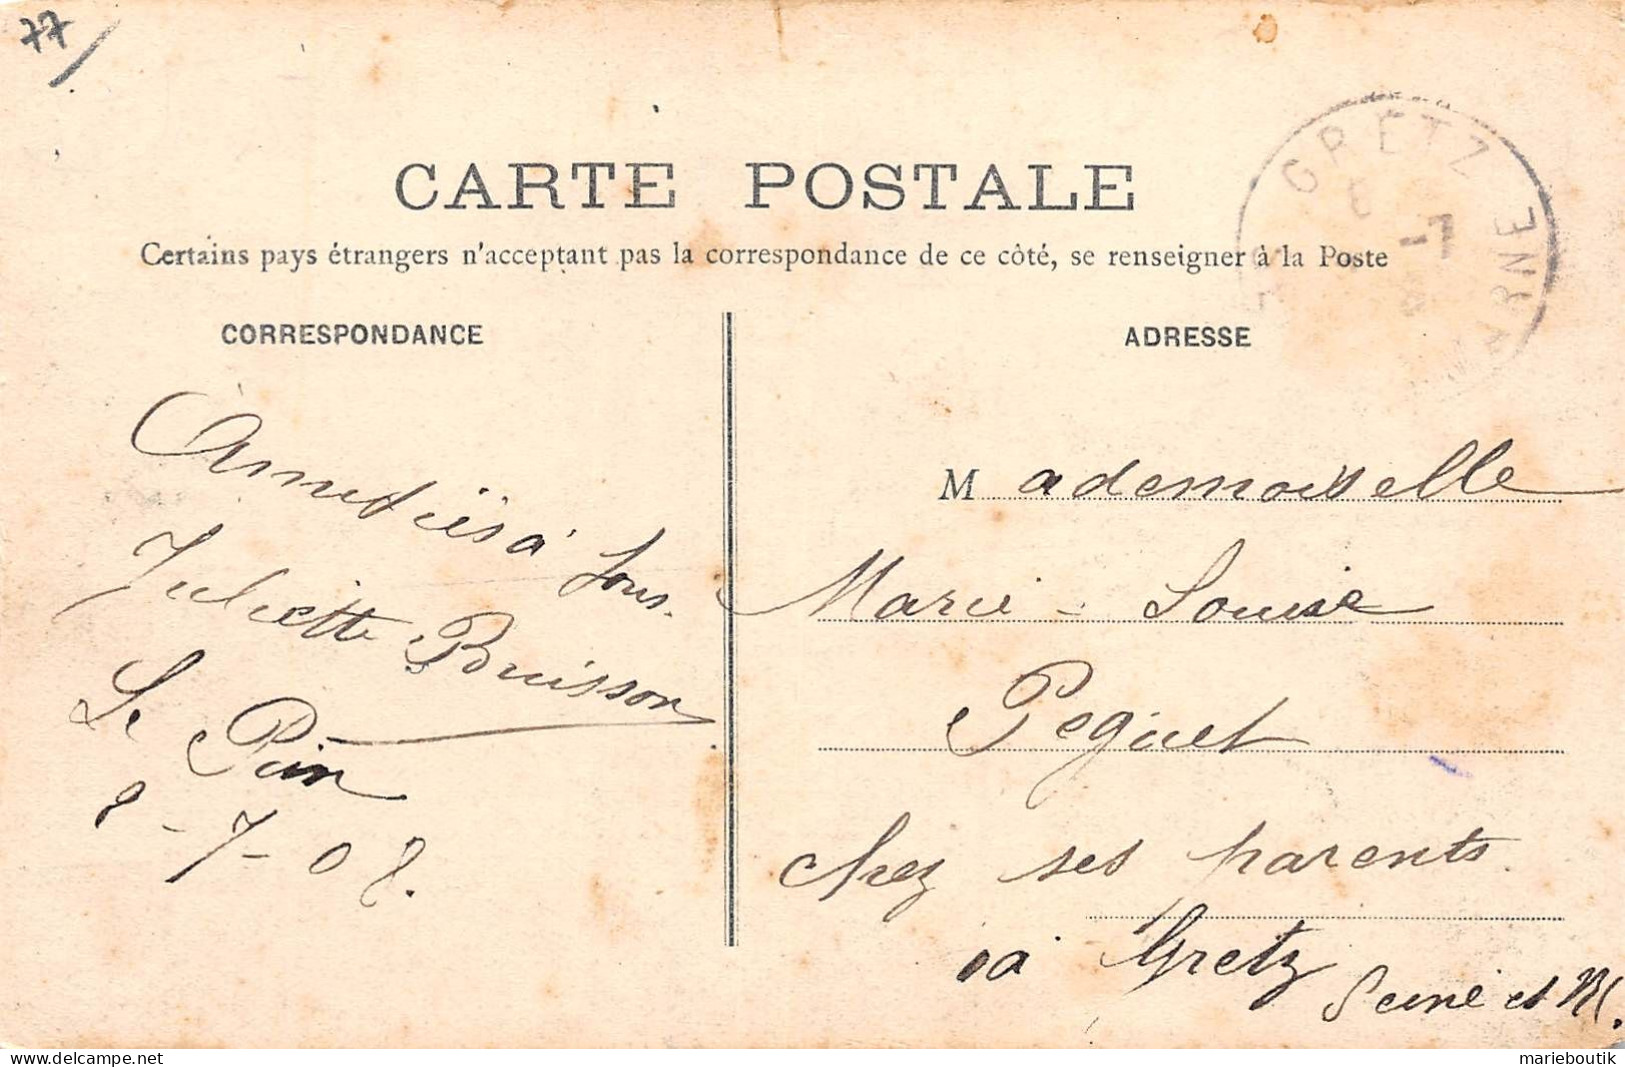 77
CARTE POSTALE
Certains pays étrangers n'acceptant pas la correspondance de ce côté, se renseigner à la Poste
GRETZ
-7
RNE
CORRESPONDANCE
Amitiés à tous.
Juliette Buisson
Le Pin
8-7-08.
ADRESSE
Mademoiselle
Marie-Louise
Peguet
chez ses parents.
à Gretz
Seine et M.
marieboutik